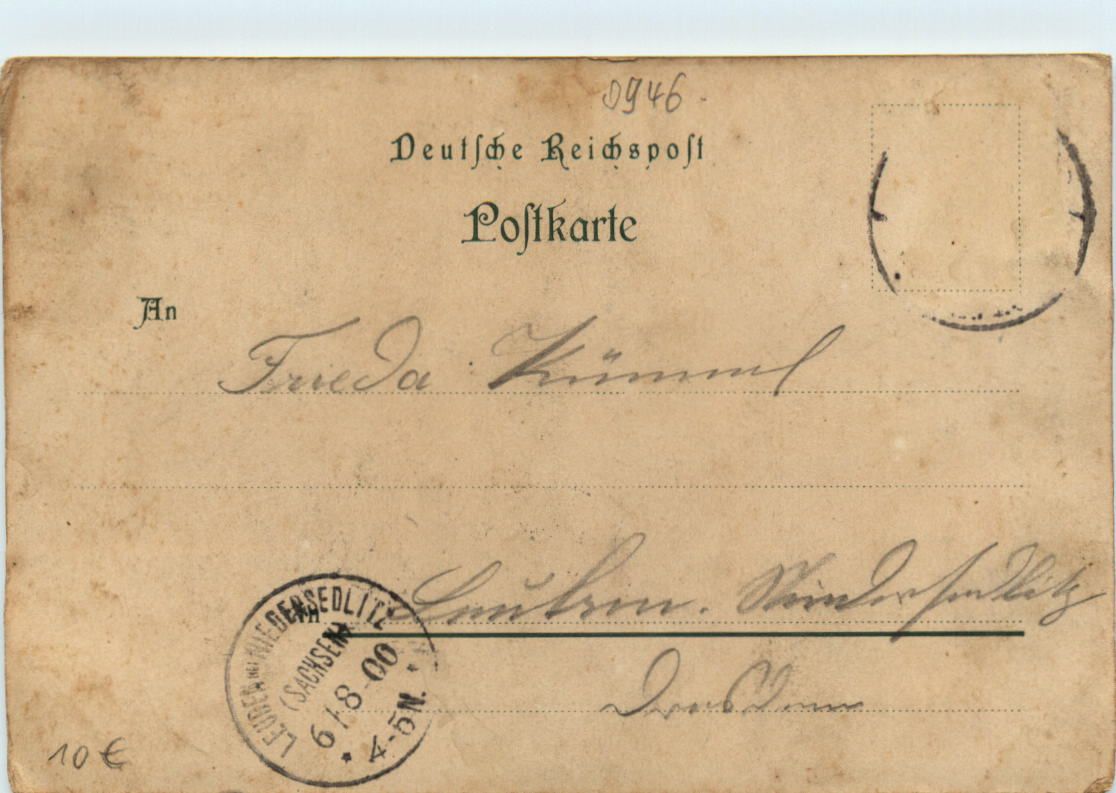 0946.
Deutſche Reichspoſt
Poſtkarte
An
Frieda Kümmel
Leuben. Niedersedlitz
in
LEUBEN BEI NIEDERSEDLITZ
(SACHSEN)
6/8 00
* 4-5N. *
Dresden
10 €